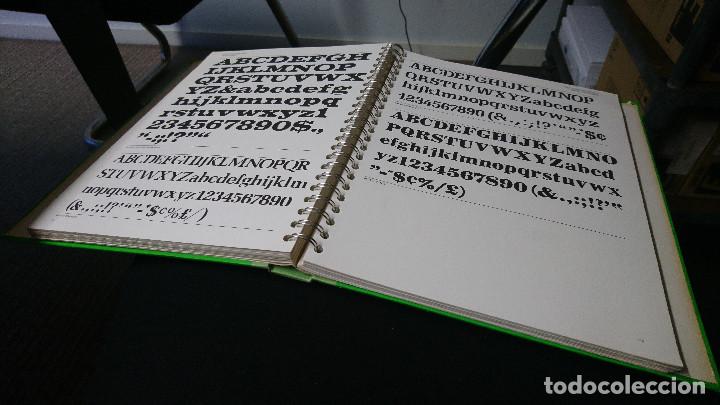 ABCDEFGH
IJKLMNOP
QRSTUVWX
YZ&abcdefg
hijklmnopq
rstuvwxyz1
234567890$.,
ABCDEFGHIJKLMNOPQR
STUVWXYZabcdefghijklm
nopqrstuvwxyz1234567890
(&.,:;!?'"“”-*$¢%£/)
ABCDEFGHIJKLMNOP
QRSTUVWXYZabcdefg
hijklmnopqrstuvwxyz
1234567890(&.,:;!?'“”"-$¢
ABCDEFGHIJKLMNO
PQRSTUVWXYZabcd
efghijklmnopqrstuv
wxyz1234567890(&.,:;!?'“
”-*$¢%/£)
todocoleccion
todocoleccion.net